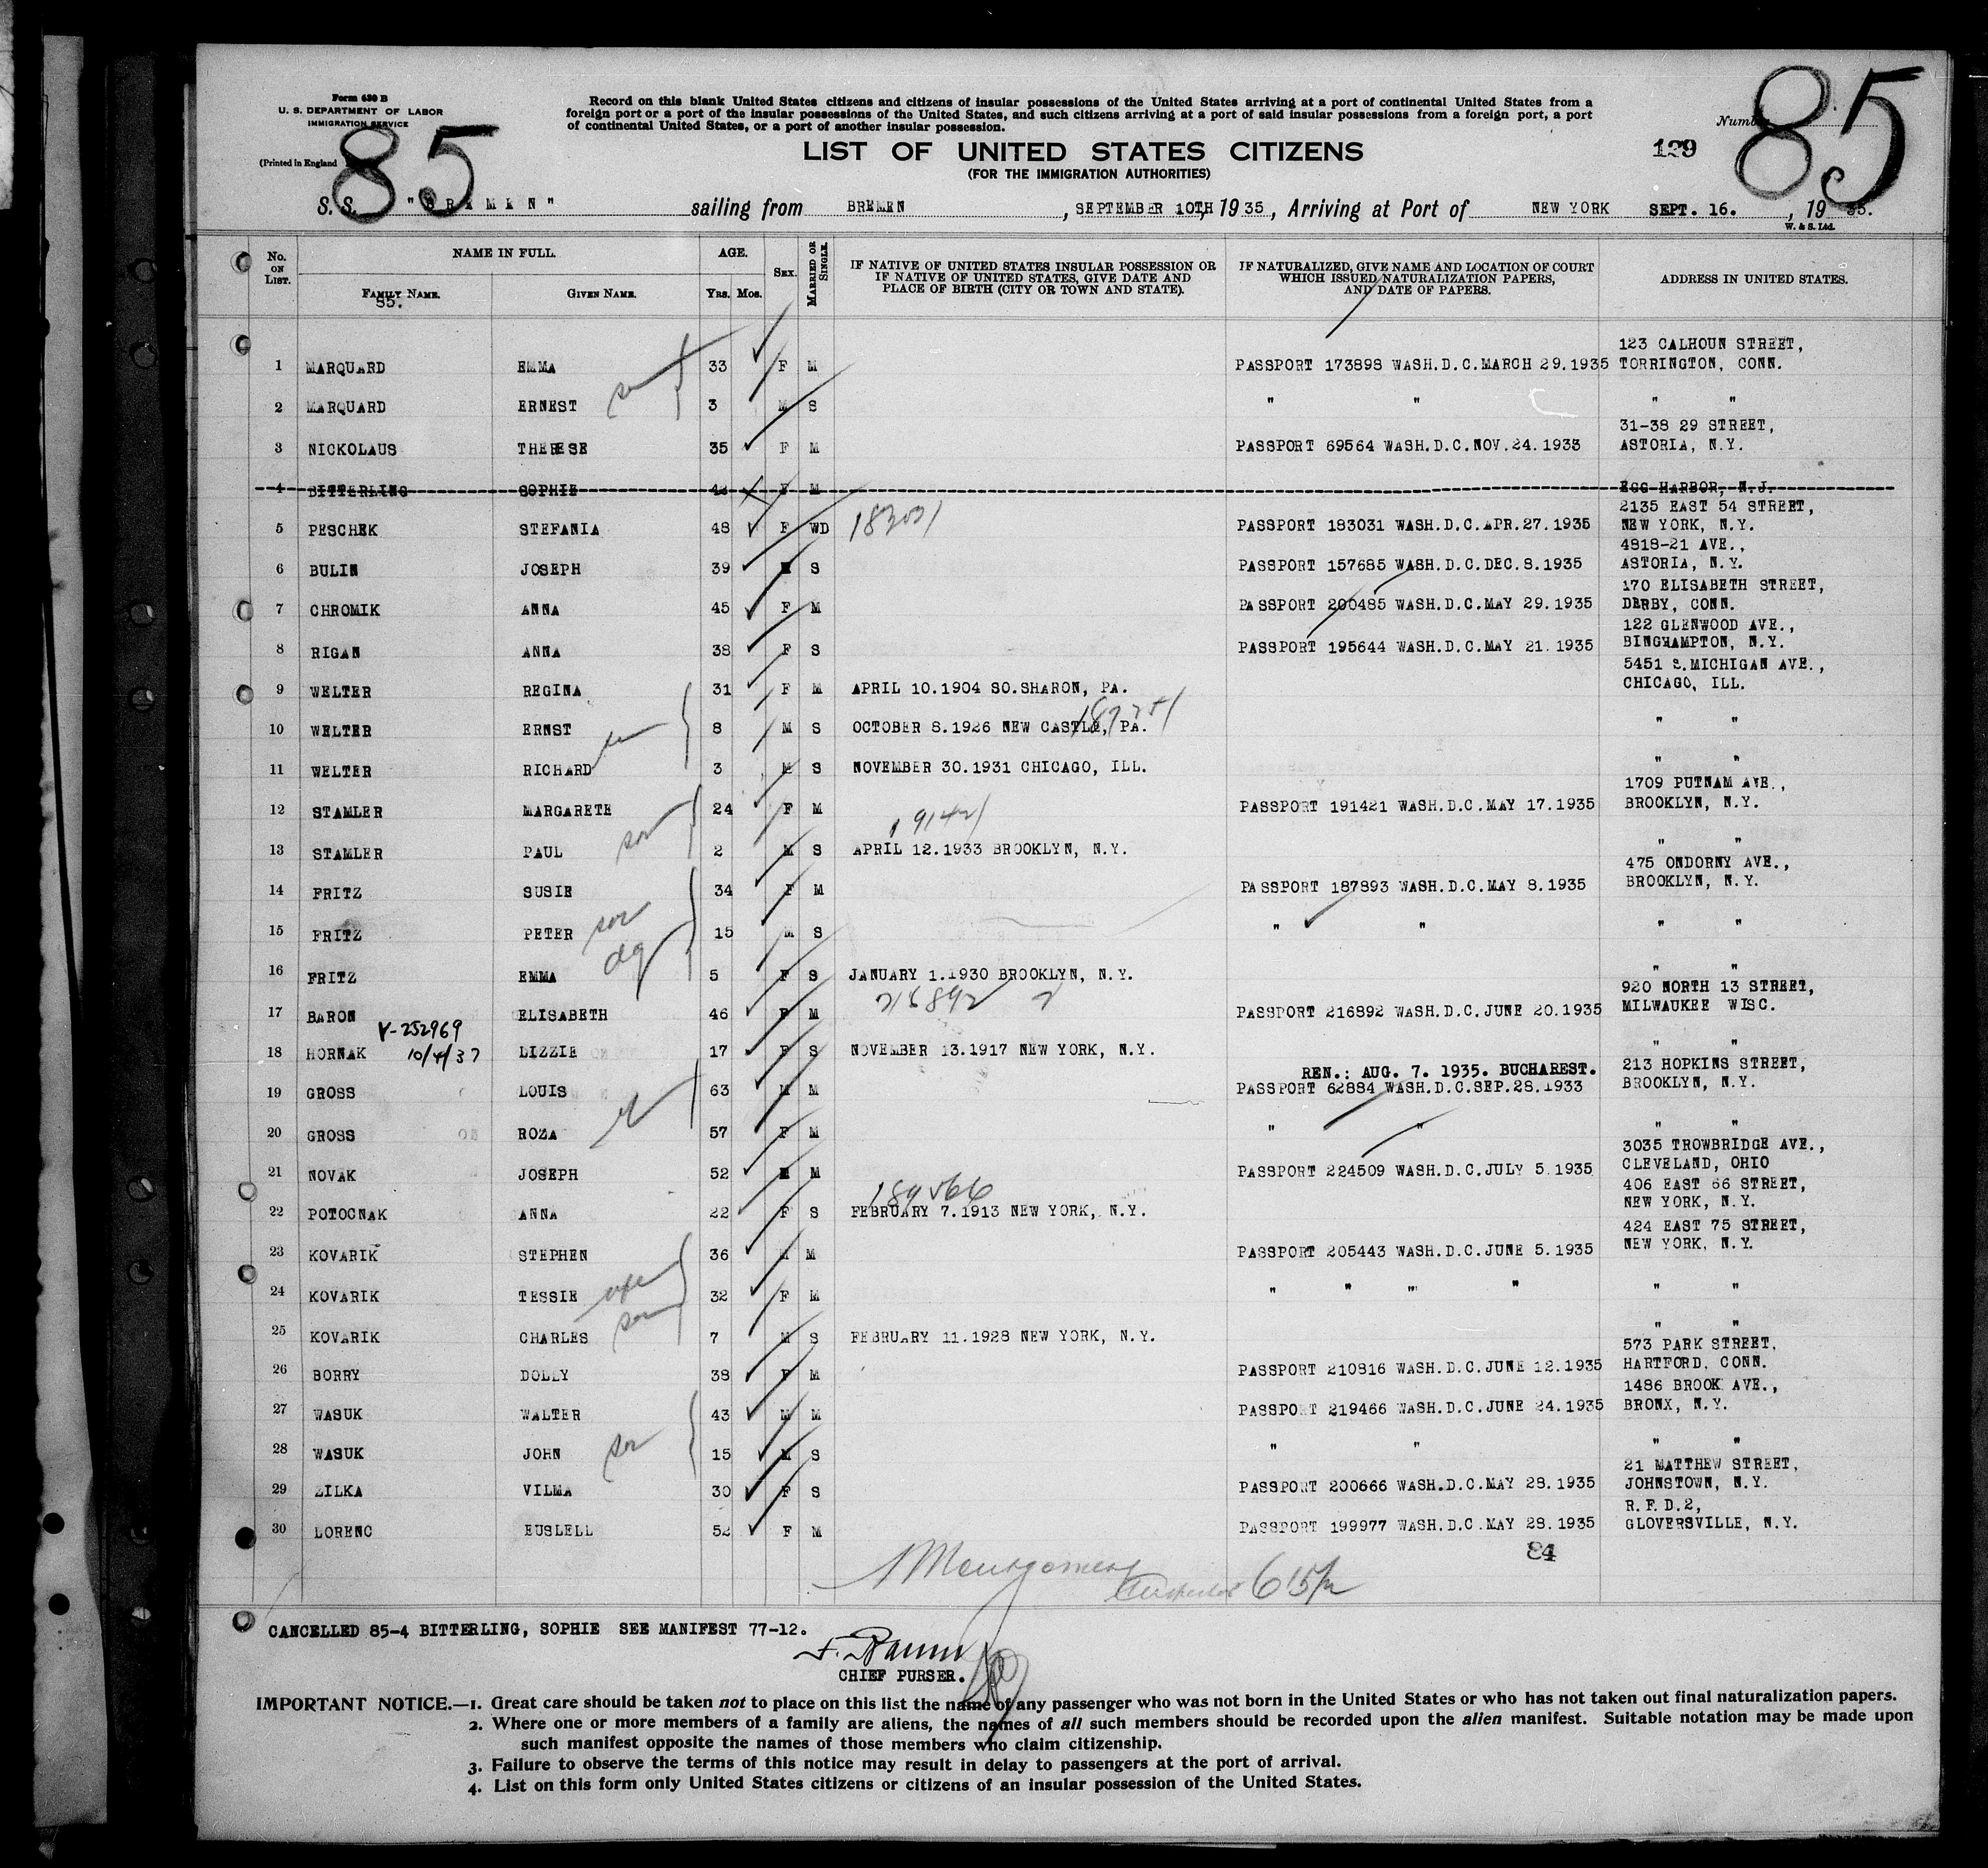 Form 630 B
U. S. DEPARTMENT OF LABOR
IMMIGRATION SERVICE
(Printed in England
85
Record on this blank United States citizens and citizens of insular possessions of the United States arriving at a port of continental United States from a
foreign port or a port of the insular possessions of the United States, and such citizens arriving at a port of said insular possessions from a foreign port, a port
of continental United States, or a port of another insular possession.
Number
85
129
LIST OF UNITED STATES CITIZENS
(FOR THE IMMIGRATION AUTHORITIES)
S. S. "BREMEN" sailing from BREMEN, SEPTEMBER 10TH, 1935, Arriving at Port of NEW YORK SEPT. 16., 1935.
W. & S. Ltd.
No. ON LIST. NAME IN FULL. AGE. SEX. MARRIED OR SINGLE. IF NATIVE OF UNITED STATES INSULAR POSSESSION OR IF NATIVE OF UNITED STATES, GIVE DATE AND PLACE OF BIRTH (CITY OR TOWN AND STATE). IF NATURALIZED, GIVE NAME AND LOCATION OF COURT WHICH ISSUED NATURALIZATION PAPERS, AND DATE OF PAPERS. ADDRESS IN UNITED STATES.
FAMILY NAME. GIVEN NAME. YRS. MOS.
85.
123 CALHOUN STREET,
1 MARQUARD EMMA 33 F M PASSPORT 173898 WASH.D.C.MARCH 29.1935 TORRINGTON, CONN.
2 MARQUARD ERNEST 3 M S " " " "
31-38 29 STREET,
3 NICKOLAUS THERESE 35 F M PASSPORT 69564 WASH.D.C.NOV.24.1933 ASTORIA, N.Y.
4 BITTERLING SOPHIE 42 F M EGG HARBOR, N.J.
2135 EAST 54 STREET,
5 PESCHEK STEFANIA 48 F WD 183031 PASSPORT 183031 WASH.D.C.APR.27.1935 NEW YORK, N.Y.
4818-21 AVE.,
6 BULIN JOSEPH 39 M S PASSPORT 157685 WASH.D.C.DEC.8.1935 ASTORIA, N.Y.
170 ELISABETH STREET,
7 CHROMIK ANNA 45 F M PASSPORT 200485 WASH.D.C.MAY 29.1935 DERBY, CONN.
122 GLENWOOD AVE.,
8 RIGAN ANNA 38 F S PASSPORT 195644 WASH.D.C.MAY 21.1935 BINGHAMPTON, N.Y.
5451 S.MICHIGAN AVE.,
9 WELTER REGINA 31 F M APRIL 10.1904 SO.SHARON, PA. CHICAGO, ILL.
10 WELTER ERNST 8 M S OCTOBER 8.1926 NEW CASTLE, PA. " "
11 WELTER RICHARD 3 M S NOVEMBER 30.1931 CHICAGO, ILL. " "
1709 PUTNAM AVE.,
12 STAMLER MARGARETE 24 F M PASSPORT 191421 WASH.D.C.MAY 17.1935 BROOKLYN, N.Y.
191421
13 STAMLER PAUL 2 M S APRIL 12.1933 BROOKLYN, N.Y. " "
475 ONDORNY AVE.,
14 FRITZ SUSIE 34 F M PASSPORT 187893 WASH.D.C.MAY 8.1935 BROOKLYN, N.Y.
15 FRITZ PETER son 15 M S " " " "
16 FRITZ EMMA dg 5 F S JANUARY 1.1930 BROOKLYN, N.Y. " "
216892
920 NORTH 13 STREET,
17 BARON ELISABETH 46 F M PASSPORT 216892 WASH.D.C.JUNE 20.1935 MILWAUKEE WISC.
V-252969
10/4/37
18 HORNAK LIZZIE 17 F S NOVEMBER 13.1917 NEW YORK, N.Y. " "
REN.: AUG. 7. 1935. BUCHAREST. 213 HOPKINS STREET,
19 GROSS LOUIS 63 M M PASSPORT 62884 WASH.D.C.SEP.28.1933 BROOKLYN, N.Y.
20 GROSS ROZA 57 F M " " " "
3035 TROWBRIDGE AVE.,
21 NOVAK JOSEPH 52 M M PASSPORT 224509 WASH.D.C.JULY 5.1935 CLEVELAND, OHIO
189566 406 EAST 66 STREET,
22 POTOCNAK ANNA 22 F S FEBRUARY 7.1913 NEW YORK, N.Y. NEW YORK, N.Y.
424 EAST 75 STREET,
23 KOVARIK STEPHEN 36 M M PASSPORT 205443 WASH.D.C.JUNE 5.1935 NEW YORK, N.Y.
24 KOVARIK TESSIE wife 32 F M " " " " " "
25 KOVARIK CHARLES son 7 M S FEBRUARY 11.1928 NEW YORK, N.Y. " "
573 PARK STREET,
26 BORRY DOLLY 38 F M PASSPORT 210816 WASH.D.C.JUNE 12.1935 HARTFORD, CONN.
1486 BROOK AVE.,
27 WASUK WALTER 43 M M PASSPORT 219466 WASH.D.C.JUNE 24.1935 BRONX, N.Y.
28 WASUK JOHN son 15 M S " " " "
21 MATTHEW STREET,
29 ZILKA VILMA 30 F S PASSPORT 200666 WASH.D.C.MAY 28.1935 JOHNSTOWN, N.Y.
R.F.D.2,
30 LORENC EUSLELL 52 F M PASSPORT 199977 WASH.D.C.MAY 28.1935 GLOVERSVILLE, N.Y.
84
Montgomery Inspector
CANCELLED 85-4 BITTERLING, SOPHIE SEE MANIFEST 77-12.
CHIEF PURSER.
IMPORTANT NOTICE.—1. Great care should be taken not to place on this list the name of any passenger who was not born in the United States or who has not taken out final naturalization papers.
2. Where one or more members of a family are aliens, the names of all such members should be recorded upon the alien manifest. Suitable notation may be made upon
such manifest opposite the names of those members who claim citizenship.
3. Failure to observe the terms of this notice may result in delay to passengers at the port of arrival.
4. List on this form only United States citizens or citizens of an insular possession of the United States.